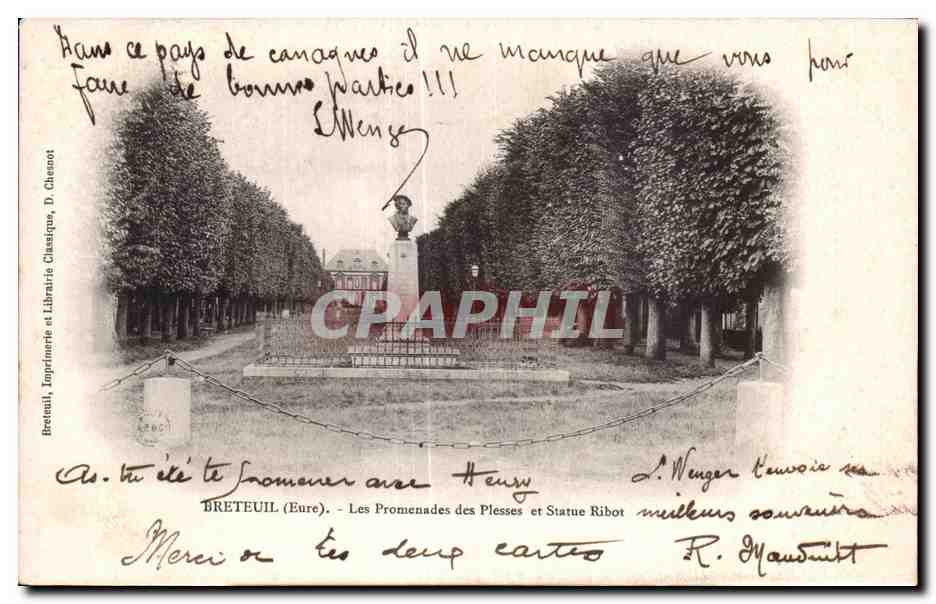 Dans ce pays de canaques il ne manque que vous pour
faire de bonnes parties !!!
L Wenger
CPARPHIL
Breteuil, Imprimerie et Librairie Classique, D. Chesnot
As-tu été te promener avec Henry
L. Wenger t'envoie ses
BRETEUIL (Eure). - Les Promenades des Plesses et Statue Ribot
meilleurs souvenirs
Merci de tes deux cartes R. Mauduit